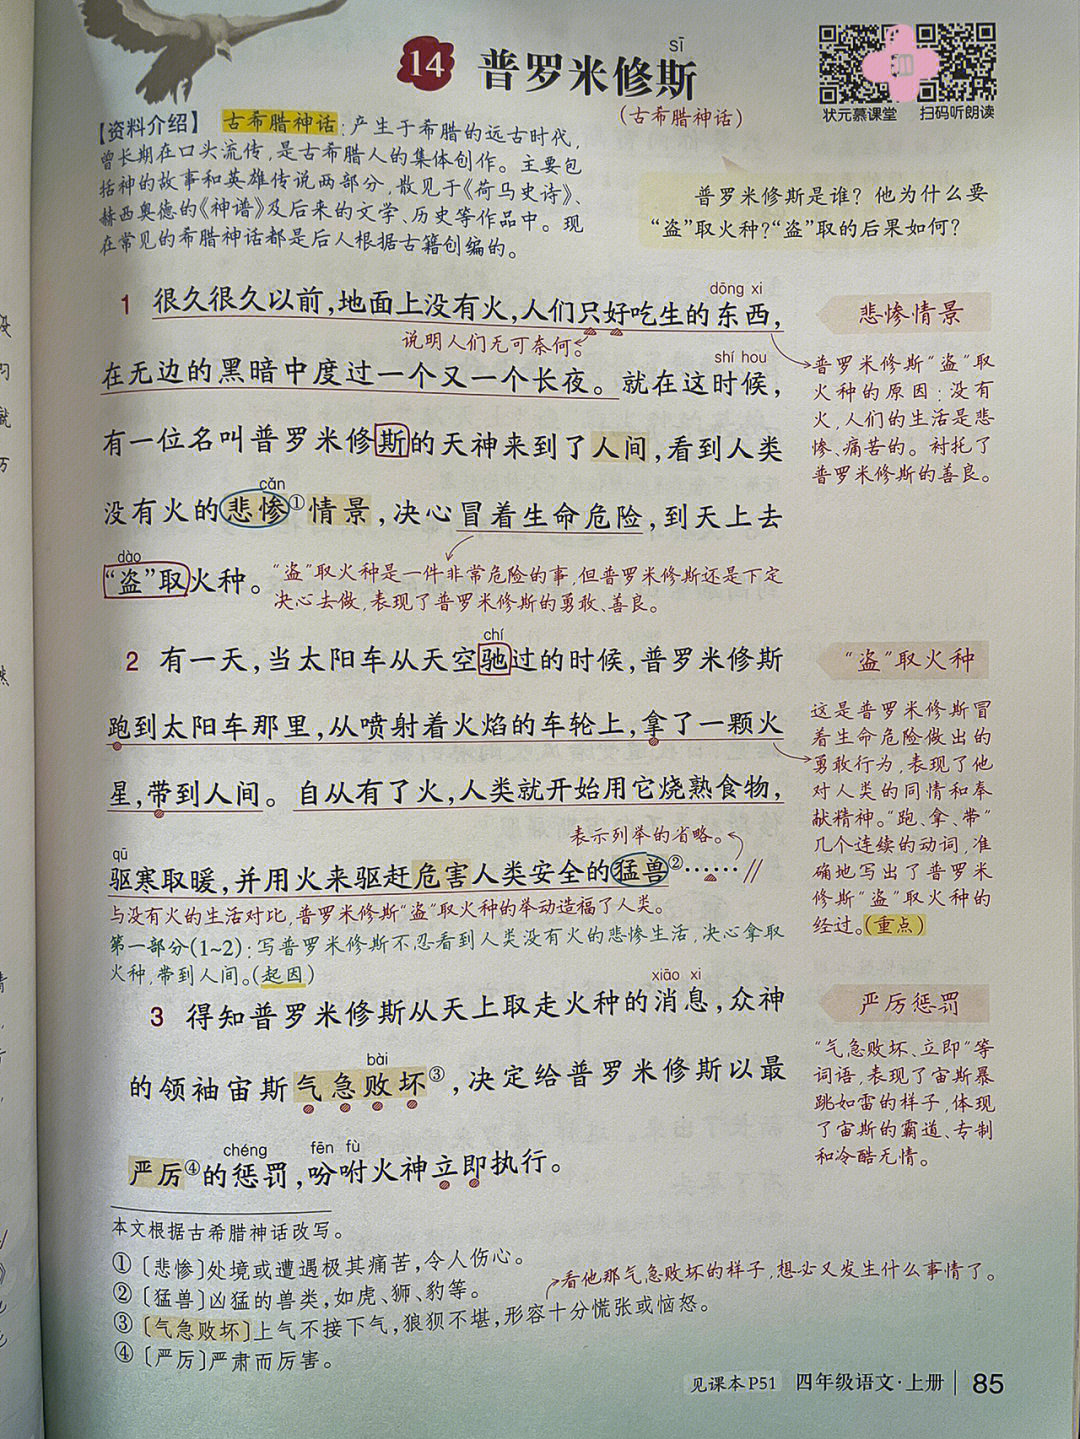 14 普罗米修斯
sī
(古希腊神话)
状元慕课堂 扫码听朗读
【资料介绍】 古希腊神话:产生于希腊的远古时代,
曾长期在口头流传,是古希腊人的集体创作。主要包
括神的故事和英雄传说两部分,散见于《荷马史诗》、
赫西奥德的《神谱》及后来的文学、历史等作品中。现
在常见的希腊神话都是后人根据古籍创编的。
普罗米修斯是谁?他为什么要
“盗”取火种?“盗”取的后果如何?
dōng xi
1 很久很久以前,地面上没有火,人们只好吃生的东西,
说明人们无可奈何。
shí hou
在无边的黑暗中度过一个又一个长夜。就在这时候,
有一位名叫普罗米修斯的天神来到了人间,看到人类
cǎn
没有火的悲惨①情景,决心冒着生命危险,到天上去
dào
“盗”取火种。
“盗”取火种是一件非常危险的事,但普罗米修斯还是下定
决心去做,表现了普罗米修斯的勇敢、善良。
悲惨情景
普罗米修斯“盗”取
火种的原因:没有
火,人们的生活是悲
惨、痛苦的。衬托了
普罗米修斯的善良。
chí
2 有一天,当太阳车从天空驰过的时候,普罗米修斯
跑到太阳车那里,从喷射着火焰的车轮上,拿了一颗火
星,带到人间。自从有了火,人类就开始用它烧熟食物,
表示列举的省略。
qū
驱寒取暖,并用火来驱赶危害人类安全的猛兽②……//
与没有火的生活对比,普罗米修斯“盗”取火种的举动造福了人类。
第一部分(1~2):写普罗米修斯不忍看到人类没有火的悲惨生活,决心拿取
火种,带到人间。(起因)
“盗”取火种
这是普罗米修斯冒
着生命危险做出的
勇敢行为,表现了他
对人类的同情和奉
献精神。“跑、拿、带”
几个连续的动词,准
确地写出了普罗米
修斯“盗”取火种的
经过。(重点)
xiāo xi
3 得知普罗米修斯从天上取走火种的消息,众神
bài
的领袖宙斯气急败坏③,决定给普罗米修斯以最
chéng fēn fù
严厉④的惩罚,吩咐火神立即执行。
严厉惩罚
“气急败坏、立即”等
词语,表现了宙斯暴
跳如雷的样子,体现
了宙斯的霸道、专制
和冷酷无情。
本文根据古希腊神话改写。
①〔悲惨〕处境或遭遇极其痛苦,令人伤心。
②〔猛兽〕凶猛的兽类,如虎、狮、豹等。
看他那气急败坏的样子,想必又发生什么事情了。
③〔气急败坏〕上气不接下气,狼狈不堪,形容十分慌张或恼怒。
④〔严厉〕严肃而厉害。
见课本P51 四年级语文·上册 85